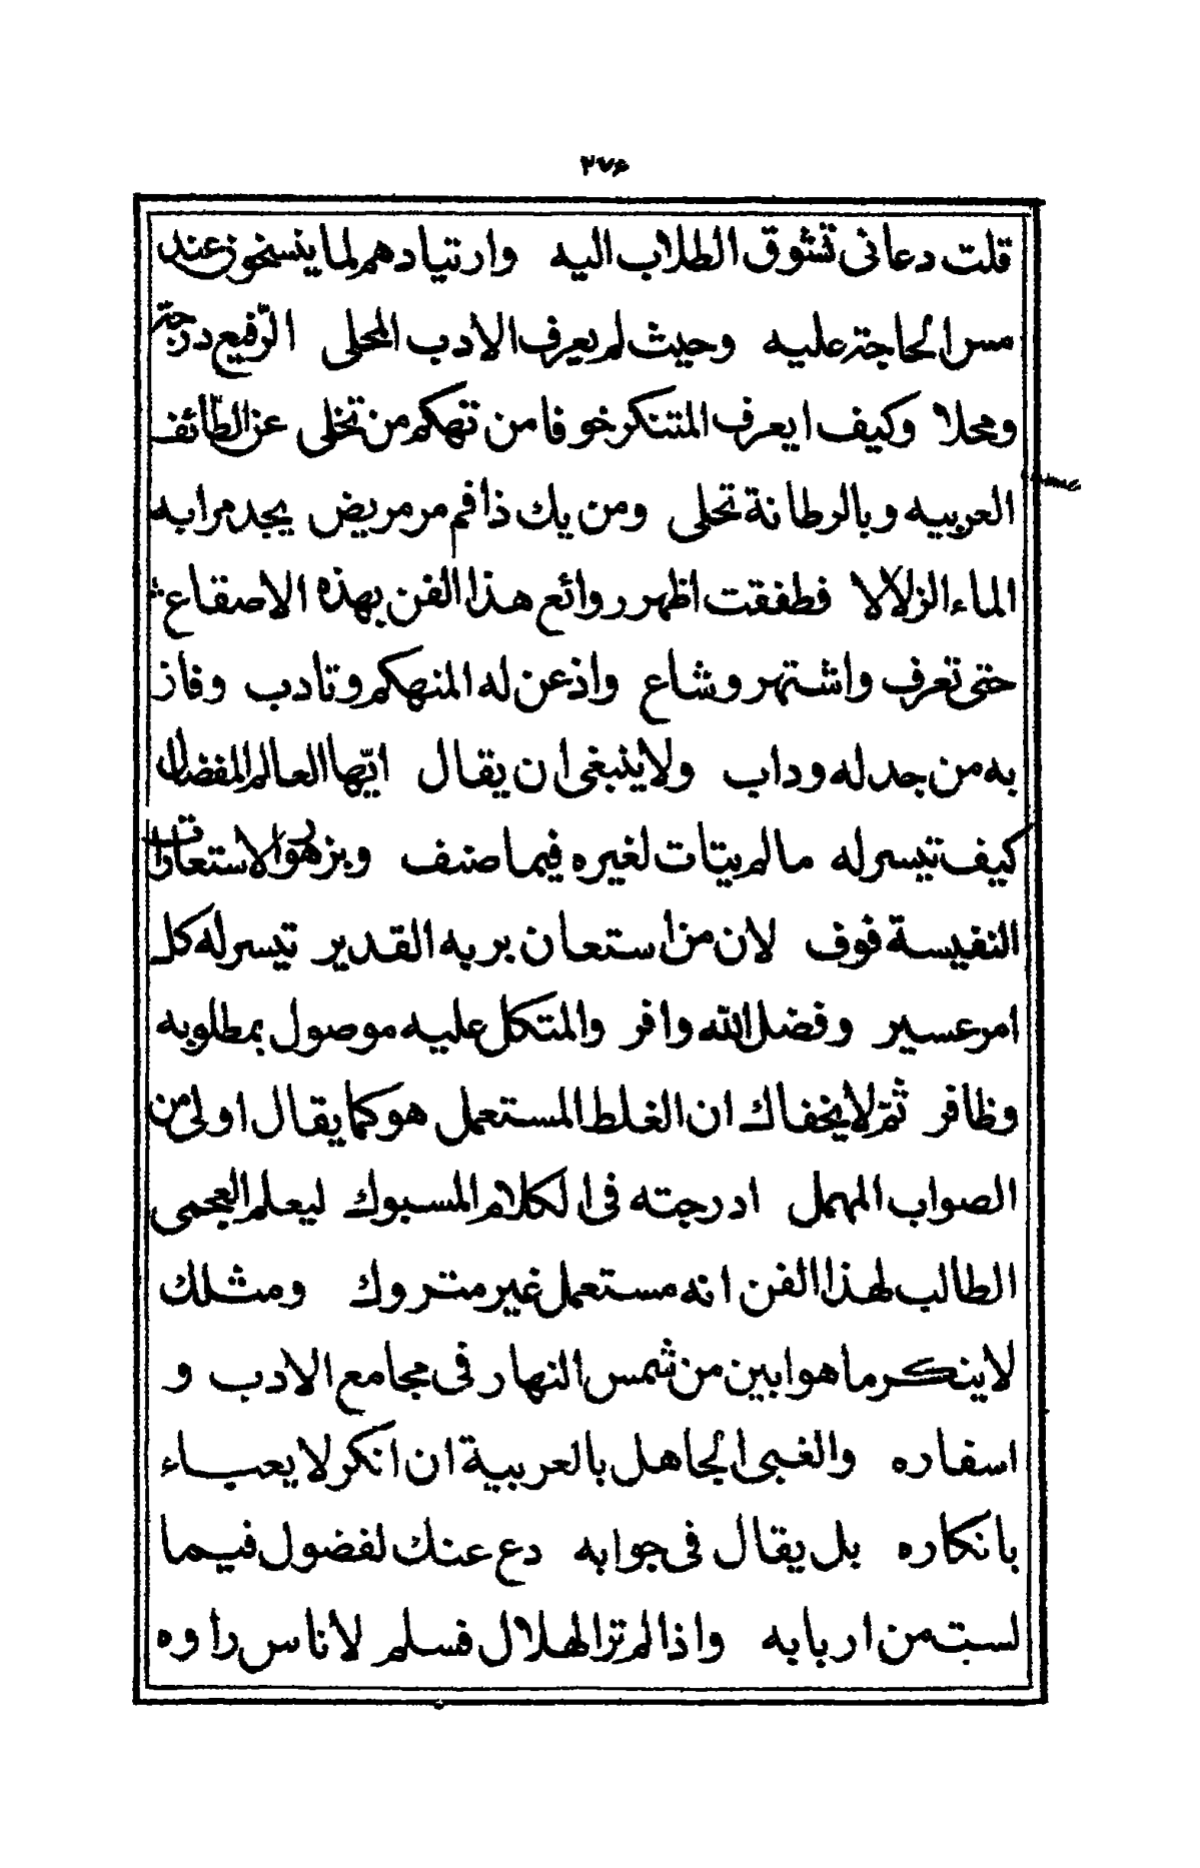 ٢٧۶
قلت دعانى تشوق الطلاب اليه وارتيادهم لما ينسخون عند
مس الحاجة عليه وحيث لم يعرف الادب المحلى الرّفيع درجة
ومحلا وكيف ا يعرف المتنكر خوفا من تهكم من تخلى عن الطّائف
العربيه وبالرطانة تحلى ومن يك ذا فم مر مريض يجد مرا به
الماء الزلالا فطفقت اظهر روائع هذا الفن بهذه الاصقاع
حتى تعرف واشتهر وشاع واذعن له المنهكم وتادب وفاز
به من جد له وداب ولا ينبغى ان يقال ايّها العالم المفضال
كيف تيسر له ما لم يتات لغيره فيما صنف وبزهو الاستعارات
النفيسة فوف لان من استعان بربه القدير تيسر له كل
امر عسير وفضل الله وافر والمتكل عليه موصول بمطلوبه
وظافر ثمّ لا يخفاك ان الغلط المستعمل هو كما يقال اولى من
الصواب المهمل ادرجته فى الكلام المسبوك ليعلم العجمى
الطالب لهذا الفن انه مستعمل غير متروك ومثلك
لا ينكر ما هو ابين من شمس النهار فى مجامع الادب و
اسفاره والغبى الجاهل بالعربية ان انكر لا يعباء
بانكاره بل يقال فى جوابه دع عنك لفضول فيما
لست من اربابه واذا لم تر الهلال فسلم لاناس راوه